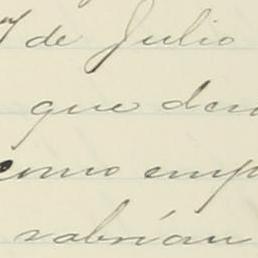 7 de Julio
que den
como emp
sabrían